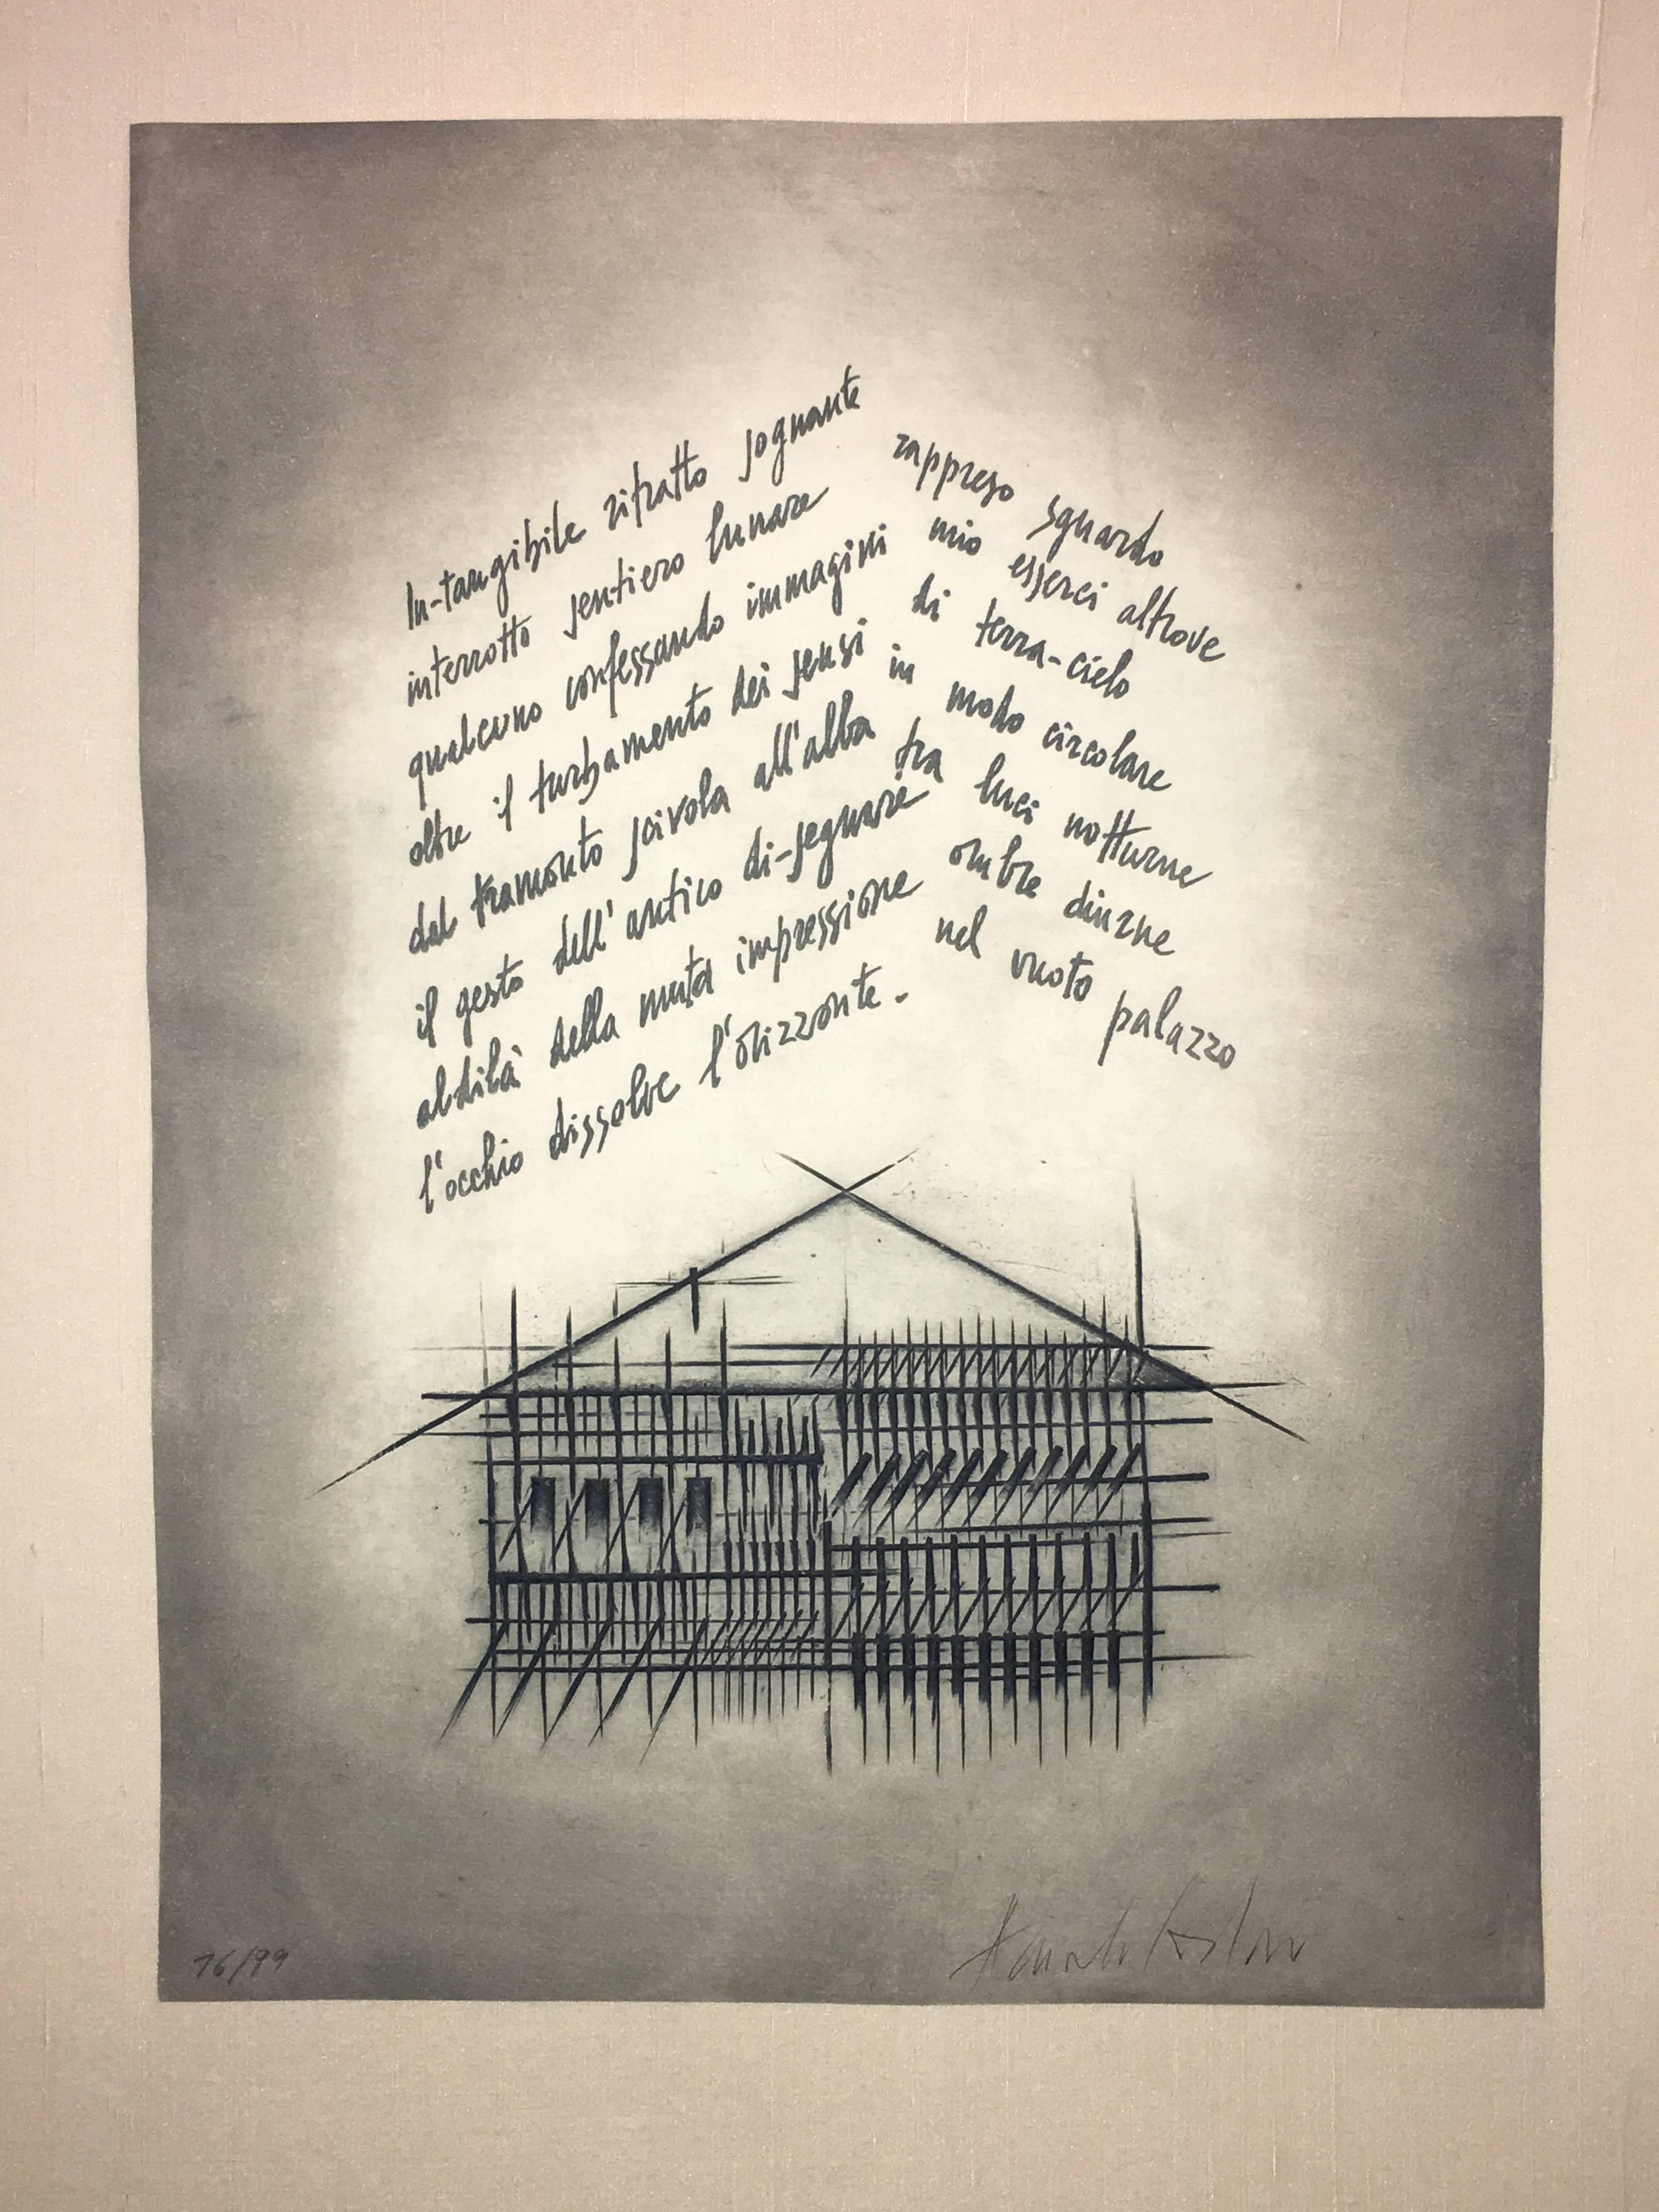 In-tangibile ritratto sognante rappreso sguardo
interrotto sentiero lunare mio esserci altrove
qualcuno confessando immagini di terra-cielo
oltre il turbamento dei sensi in modo circolare
dal tramonto scivola all'alba tra luci notturne
il gesto dell'antico di-segnare ombre diurne
aldilà della muta impressione nel vuoto palazzo
l'occhio dissolve l'orizzonte.-
16/99